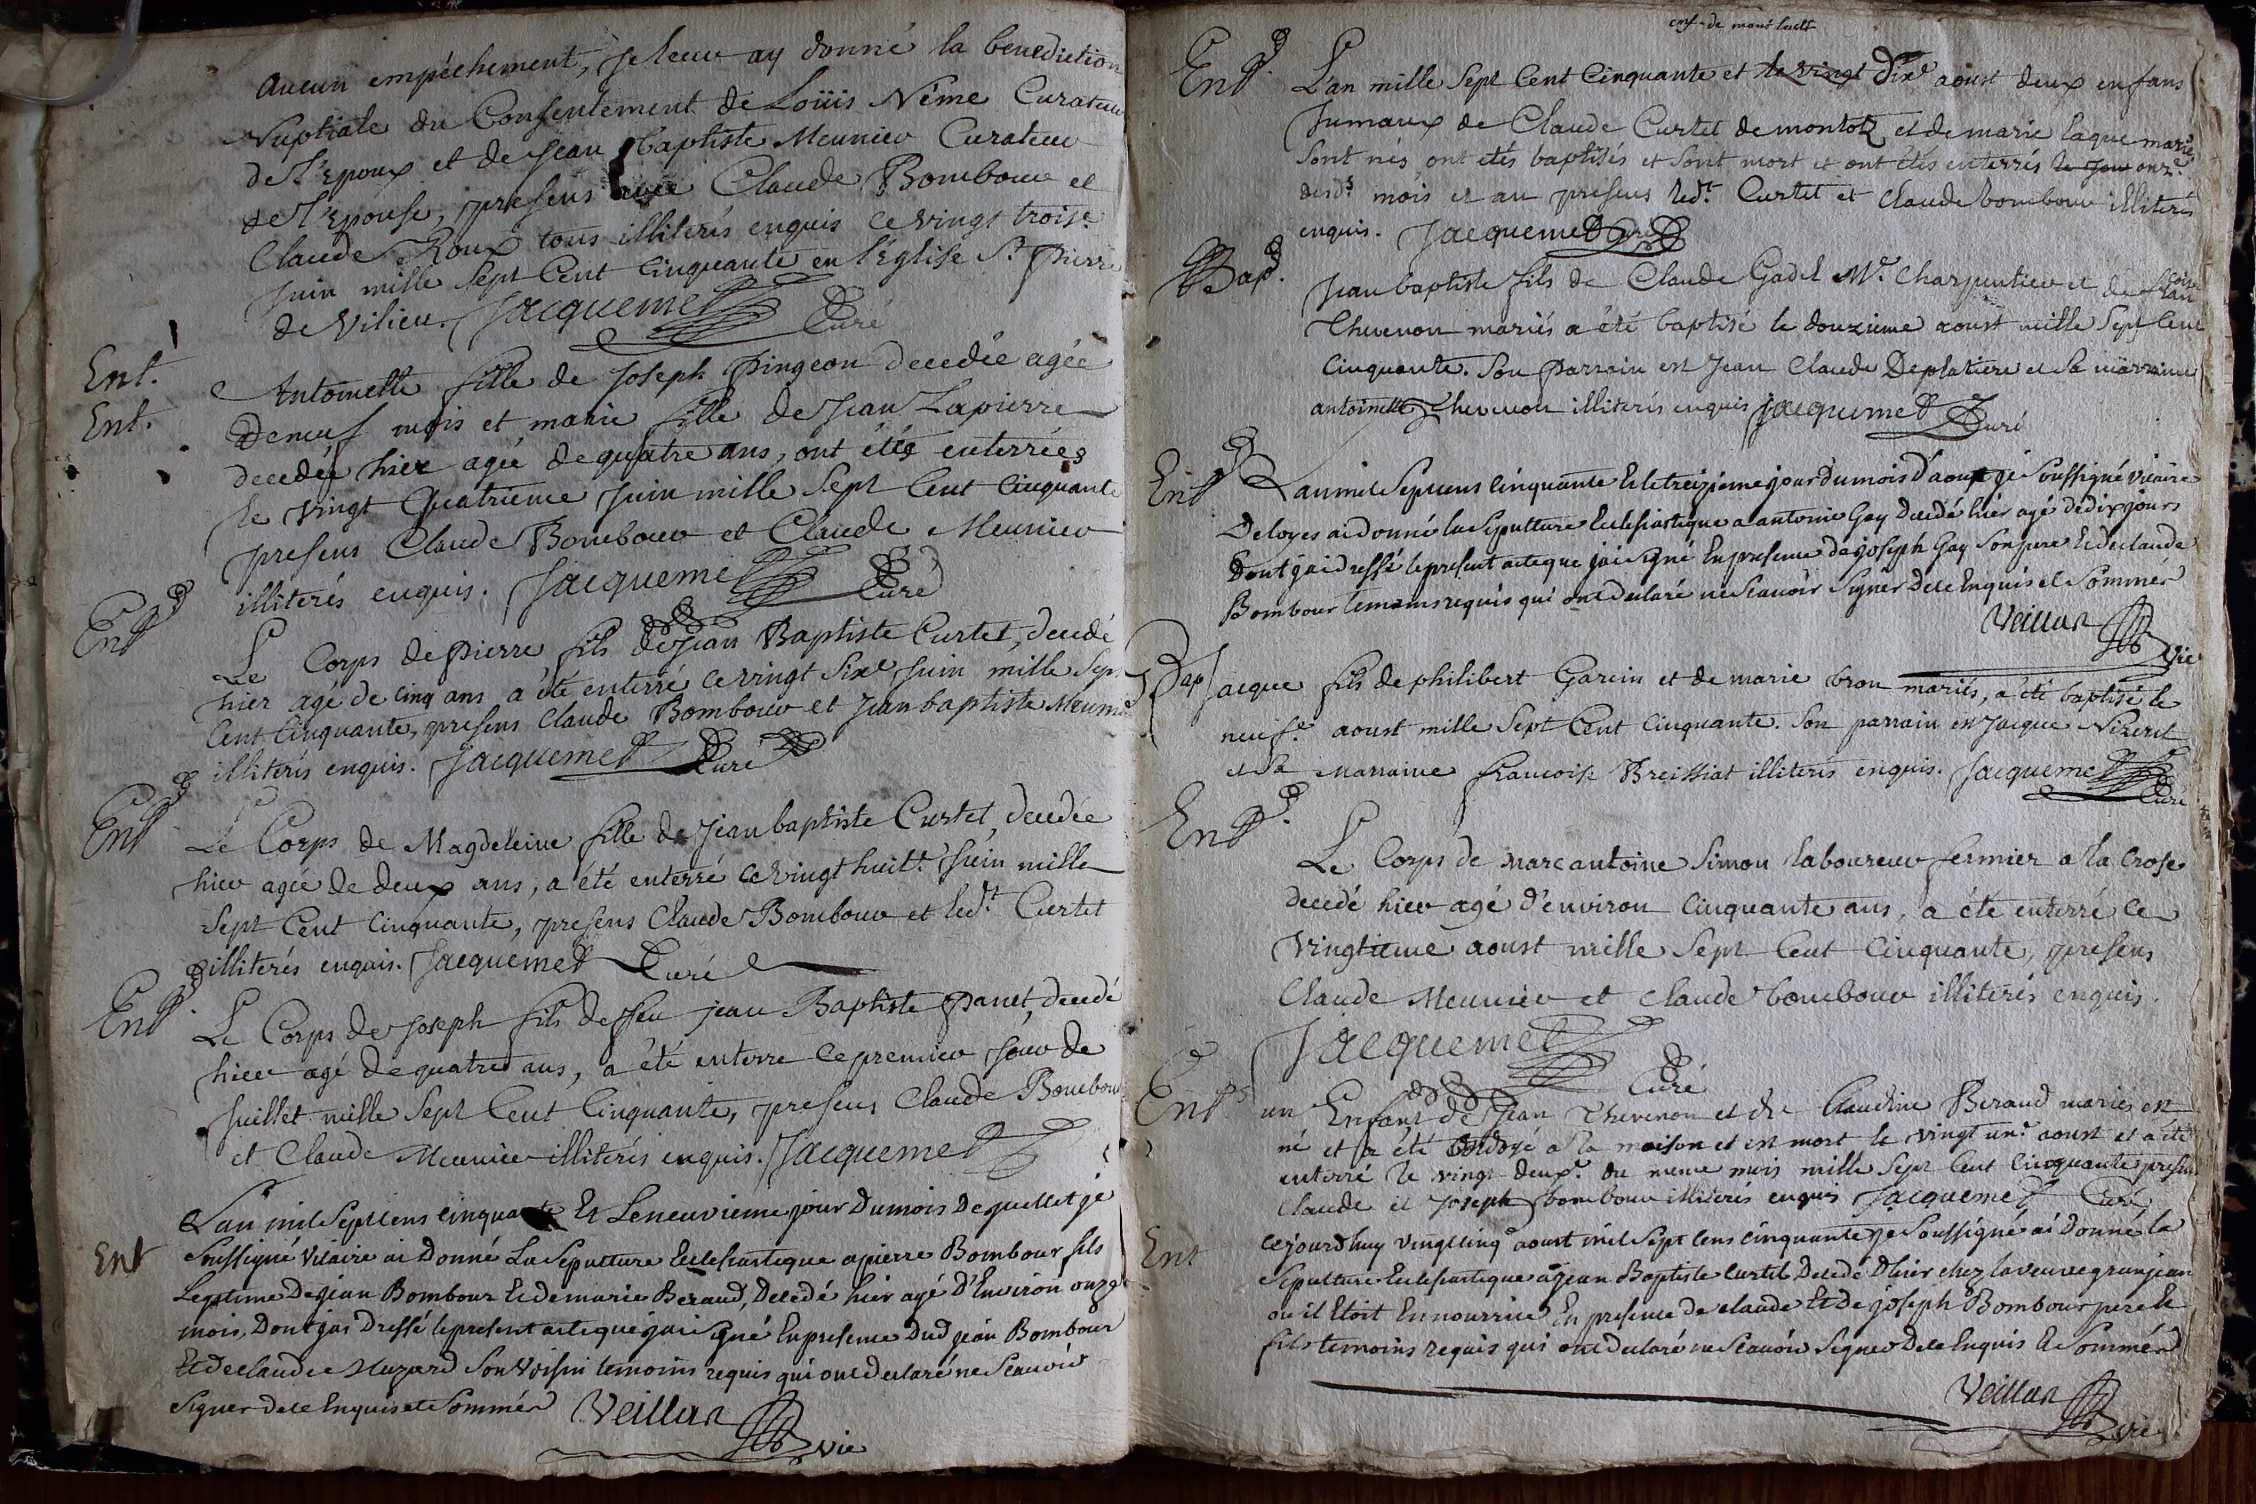 aucun empéchement, je leur ay donné la benediction
Nuptiale du Consentement de Loüis Néme Curateur
de L'Epoux et de Jean Baptiste Meunier Curateur
de L'Epouse, presens avec Claude Bombour et
Claude Roux tous illiterés enquis ce vingt troise.
Juin mille Sept Cent Cinquante en l'Eglise St. Pierre
de Vilieu. Jacquemet Curé
Ent.
Ent.
Antoinette fille de Joseph Pingeon decedée agée
de neuf mois et marie fille de Jean Lapierre
decedée hier agée de quatre ans, ont étés enterrées
le vingt Quatrieme Juin mille Sept Cent Cinquante
presens Claude Bombour et Claude Meunier
illiterés enquis. Jacquemet Curé
Ent
Le Corps de Pierre fils de Jean Baptiste Curtet, decedé
hier agé de cinq ans a été enterré ce vingt Sixe Juin mille Sep.
Cent Cinquante, presens Claude Bombour et Jean baptiste Meunie
illiterés enquis. Jacquemet Curé
Ent
Le Corps de Magdeleine fille de Jean baptiste Curtet, decedée
hier agée de deux ans, a été enterré ce vingt huit. Juin mille
Sept Cent Cinquante, presens Claude Bombour et ledt. Curtet
illiterés enquis. Jacquemet Curé
Ent.
Le Corps de Joseph fils de feu jean Baptiste Panet, decedé
hier agé de quatre ans, a été enterre ce premier Jour de
Juillet mille Sept Cent Cinquante, presens Claude Bombour
et Claude Meunier illiterés enquis. Jacquemet
Ent
L'an mil Sept cens cinquante Et Le neuvieme jour Du mois De juillet je
Soussigné Vicaire ai Donné La Sepulture Ecclesiastique a pierre Bombour fils
Legitime De jean Bombour Et de marie Beraud, Decedé hier agé D'Environ onze
mois, Dont jai Dressé le present acte que jai signé En presence Dud jean Bombour
Et de claude Muzard Son Voisin temoins requis qui ont declaré ne Scavoir
Signer de ce Enquis et Sommés Veillar vic
enf. de mont luel
Ent.
L'an mille Sept Cent Cinquante et le vingt dixe aoust deux enfans
Jumaux de Claude Curtet de montoz et de marie laque mariés
Sont nés ont etés baptisés et Sont mort et ont étés enterrés le jour onze.
desds. mois et an presens ledt. Curtet et Claude bombour illiterés
enquis. Jacquemet Curé
Bap.
Jean baptiste fils de Claude Gadel Me. Charpentier et de
Thevenon mariés a été baptisé le douzieme aoust mille Sept Cent
Cinquante. Son Parrain est Jean Claude Deplatiere et Sa marraine
antoinette Thevenon illiterés enquis Jacquemet Curé
Ent
L an mil Sept cens Cinquante Et le treizieme jour du mois D'aoust je Soussigné Vicaire
De loyes ai donné la Sepulture Ecclesiastique a antoine Gay Decedé hier agé de dix jours
Dont jai dressé le present acte que jai signé En presence de joseph Gay Son pere Et de claude
Bombour temoins requis qui ont declaré ne Scavoir Signer De ce Enquis et Sommés
Veillar vic
Bap
Jacque fils de philibert Garin et de marie bron mariés, a été baptisé le
neufe. aoust mille Sept Cent Cinquante. Son parrain est Jacque Nizeret
et Sa Marraine francoise Breissiat illiterés enquis. Jacquemet Curé
Ent.
Le Corps de marc antoine Simon laboureur fermier a la Crose
decedé hier agé d'environ Cinquante ans, a été enterré Ce
Vingtieme aoust mille Sept Cent Cinquante, presens
Claude Meunier et Claude bombour illiterés enquis.
Jacquemet Curé
Ent
un Enfant de Jean Thevenon et de Claudine Beraud mariés est
né et a été Ondoyé a la maison et est mort le vingt une. aoust et a été
enterré le vingt deuxe. du meme mois mille Sept Cent Cinquante presens
Claude et Joseph bombour illiterés enquis Jacquemet Curé
Ent
Cejourd'huy vingt cinq aoust mil Sept cens cinquante je Soussigné ai Donné la
Sepulture Ecclesiastique a jean Baptiste Curtet Decedé D'hier chez la veuve granjean
ou il Etoit En nourrice En presence de claude Et De joseph Bombour pere Et
fils temoins requis qui ont declaré ne Scavoir Signer De ce Enquis Et Sommés
Veillar vic